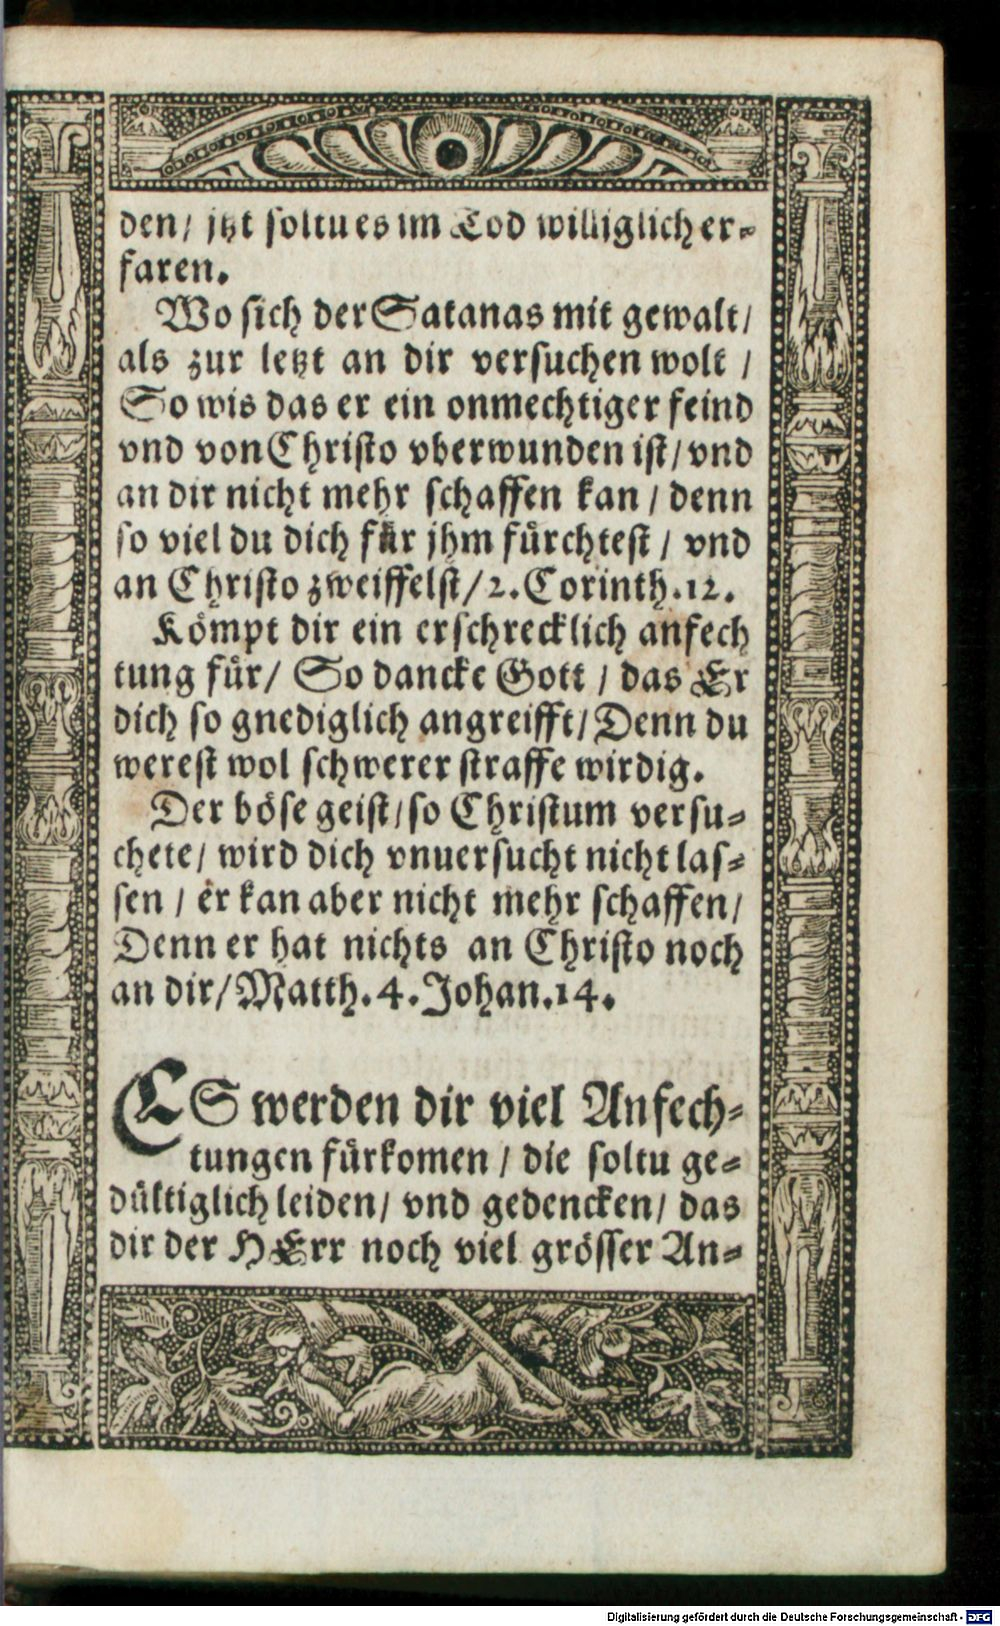 den / jtzt soltu es im Tod williglich er-
faren.
Wo sich der Satanas mit gewalt /
als zur letzt an dir versuchen wolt /
So wis das er ein onmechtiger feind
vnd von Christo vberwunden ist / vnd
an dir nicht mehr schaffen kan / denn
so viel du dich für jhm fürchtest / vnd
an Christo zweiffelst / 2. Corinth. 12.
Kömpt dir ein erschrecklich anfech
tung für / So dancke Gott / das Er
dich so gnediglich angreifft / Denn du
werest wol schwerer straffe wirdig.
Der böse geist / so Christum versu-
chete / wird dich vnuersucht nicht las-
sen / er kan aber nicht mehr schaffen /
Denn er hat nichts an Christo noch
an dir / Matth. 4. Johan. 14.
ES werden dir viel Anfech-
tungen fürkomen / die soltu ge-
dültiglich leiden / vnd gedencken / das
dir der HErr noch viel grösser An-
Digitalisierung gefördert durch die Deutsche Forschungsgemeinschaft - DFG